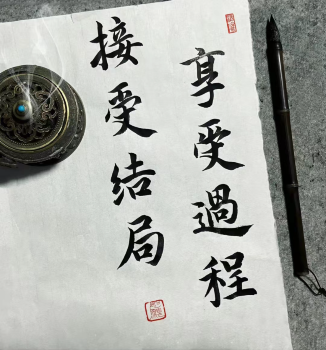 享受過程
接受结局